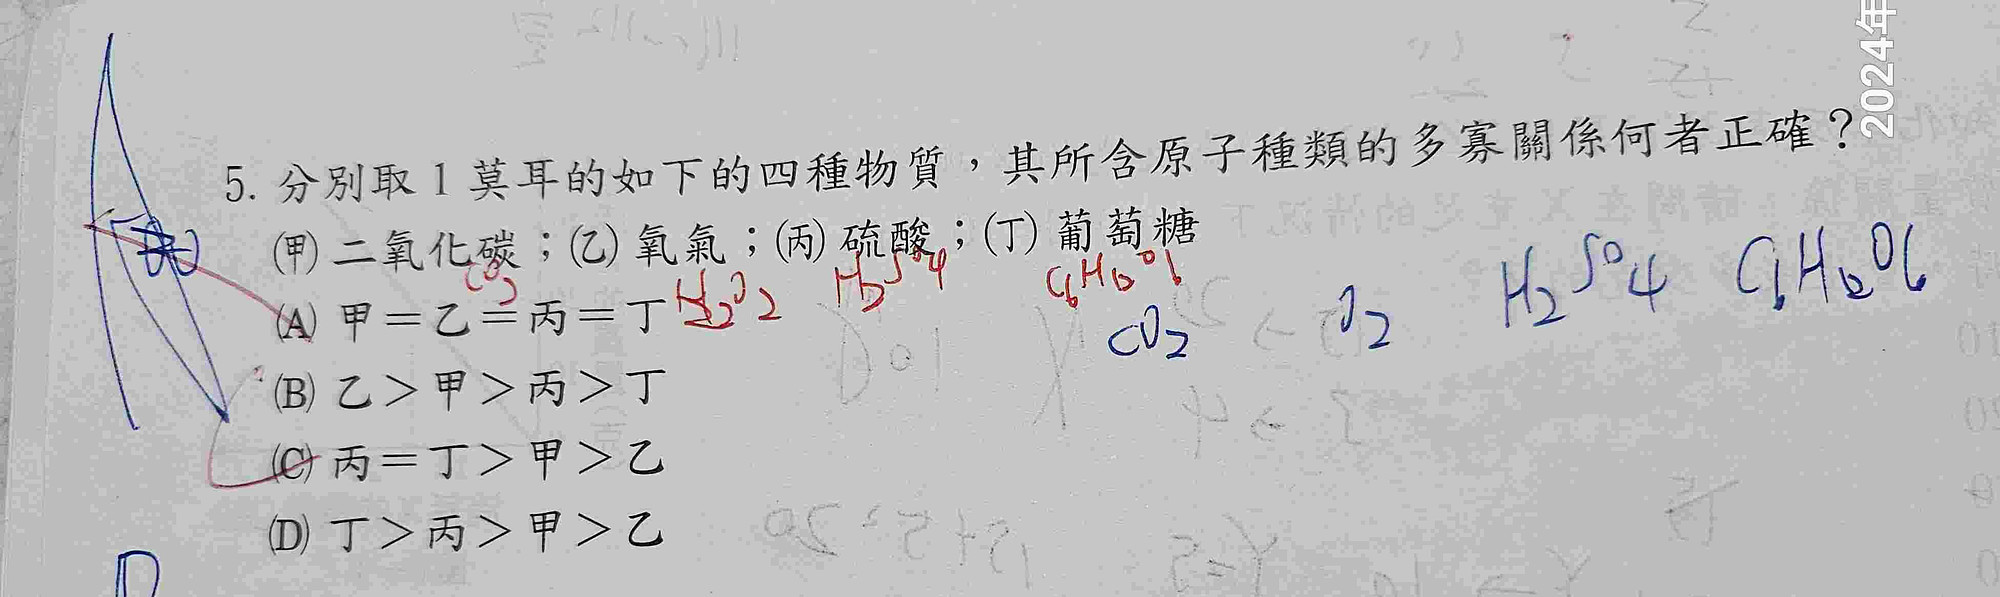 2024年
5. 分別取1莫耳的如下的四種物質,其所含原子種類的多寡關係何者正確?
(甲)二氧化碳;(乙)氧氣;(丙)硫酸;(丁)葡萄糖
CO2 H2O2 H2SO4 C6H12O6
(A) 甲=乙=丙=丁
CO2 O2 H2SO4 C6H12O6
(B) 乙>甲>丙>丁
(C) 丙=丁>甲>乙
(D) 丁>丙>甲>乙